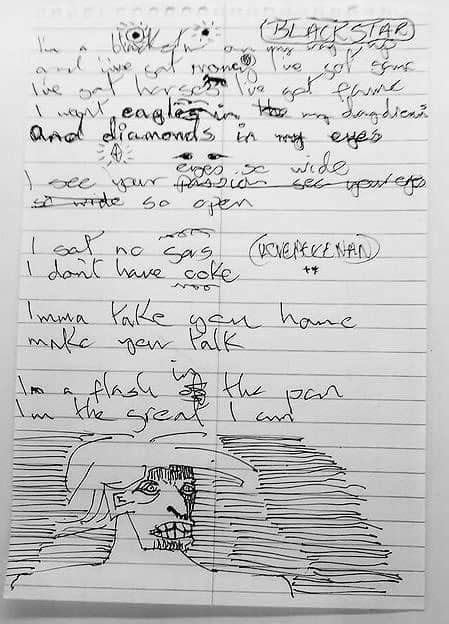 BLACKSTAR
I'm a on my way up
and I've got money I've got game
I've got horses I've got fame
I want eagles in the my daydreams
and diamonds in my eyes
eyes so wide
I see your passion see your eyes
so wide so open
I no
I don't have coke
Imma take you home
make you talk
in
I'm a flash of the pan
I'm the great I am